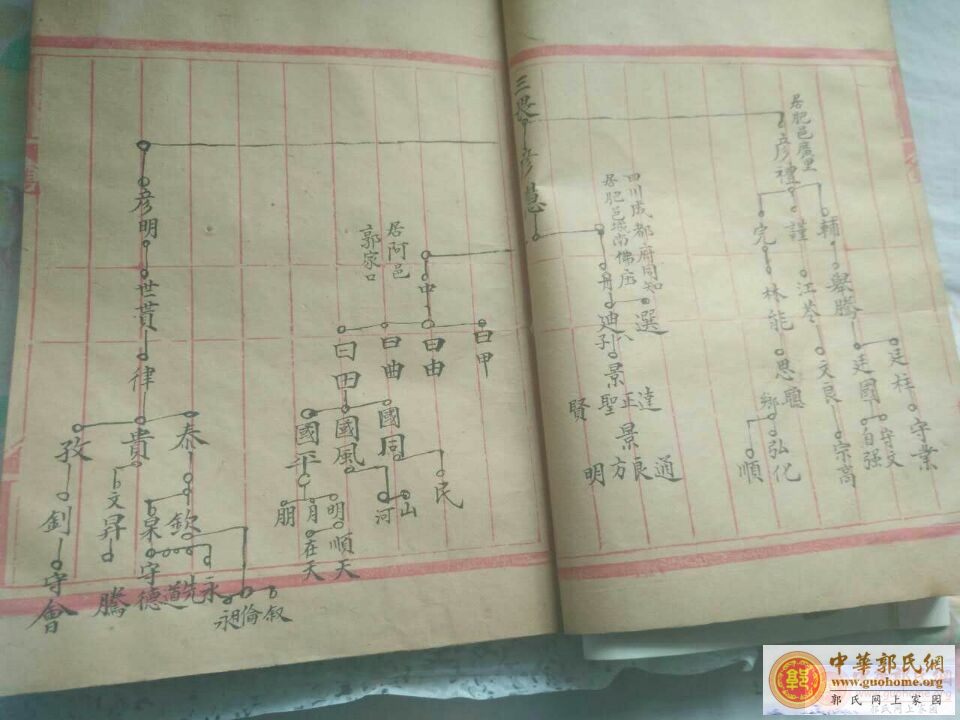 三畏
居肥邑廣里
彦禮
輔
謹
完
舉騰
江苓
林能
廷柱
廷國
文良
思聰
守業
守文
自强
宗高
弘化
順
彦
四川成都府同知
居肥邑城南儒庄
選
迪
景
達
正
聖
賢
景
通
良
方
明
居阿邑
郭家口
中
曰甲
曰由
曰曲
曰田
國同
國風
國平
民
山
河
明
月
朋
順天
在天
彦明
世貰
律
泰
貴
孜
欽
文昇
釗
守德
道
先
永
叙
倫
騰
守會
中華郭氏網
www.guohome.org
郭氏网上家园